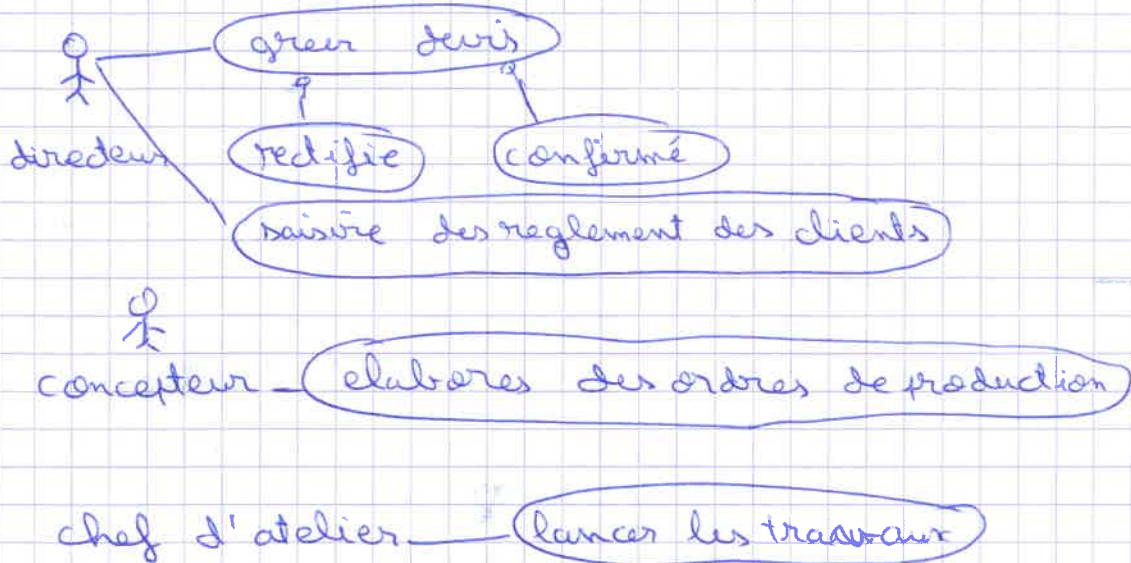 greer devis
directeur
rectifie
confirmé
saisire des reglement des clients
concepteur
elabores des ordres de production
chef d'atelier
lancer les travaux